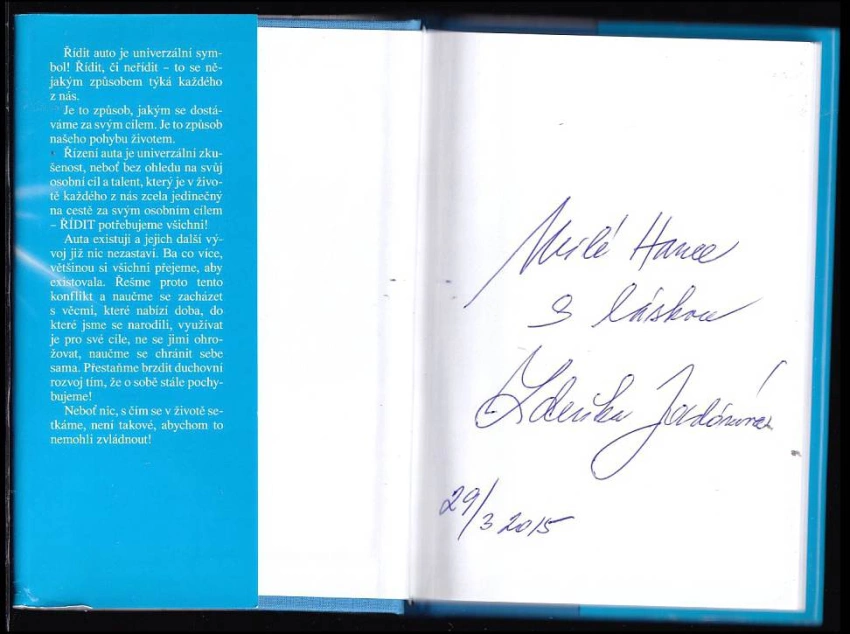 Řídit auto je univerzální sym-
bol! Řídit, či neřídit – to se ně-
jakým způsobem týká každého
z nás.
Je to způsob, jakým se dostá-
váme za svým cílem. Je to způsob
našeho pohybu životem.
Řízení auta je univerzální zku-
šenost, neboť bez ohledu na svůj
osobní cíl a talent, který je v živo-
tě každého z nás zcela jedinečný
na cestě za svým osobním cílem
– ŘÍDIT potřebujeme všichni!
Auta existují a jejich další vý-
voj již nic nezastaví. Ba co více,
většinou si všichni přejeme, aby
existovala. Řešme proto tento
konflikt a naučme se zacházet
s věcmi, které nabízí doba, do
které jsme se narodili, využívat
je pro své cíle, ne se jimi ohro-
žovat, naučme se chránit sebe
sama. Přestaňme brzdit duchovní
rozvoj tím, že o sobě stále pochy-
bujeme!
Neboť nic, s čím se v životě se-
tkáme, není takové, abychom to
nemohli zvládnout!
Milé Hance
s láskou
Zdeňka
29/3 2015